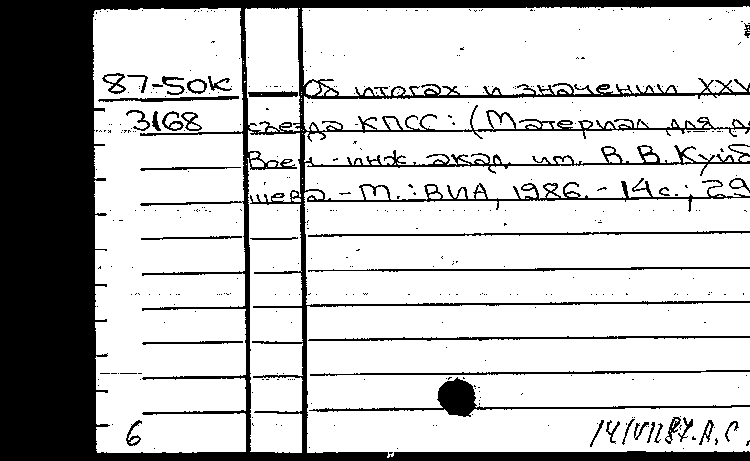 87-50К Об итогах и значении XXV
3168 съезда КПСС: (Материал для
Воен.-инж. акад. им. В. В. Куйб
шева. - М.: ВИА, 1986. - 14 с.; 29
6 14/VII 87. А. С.